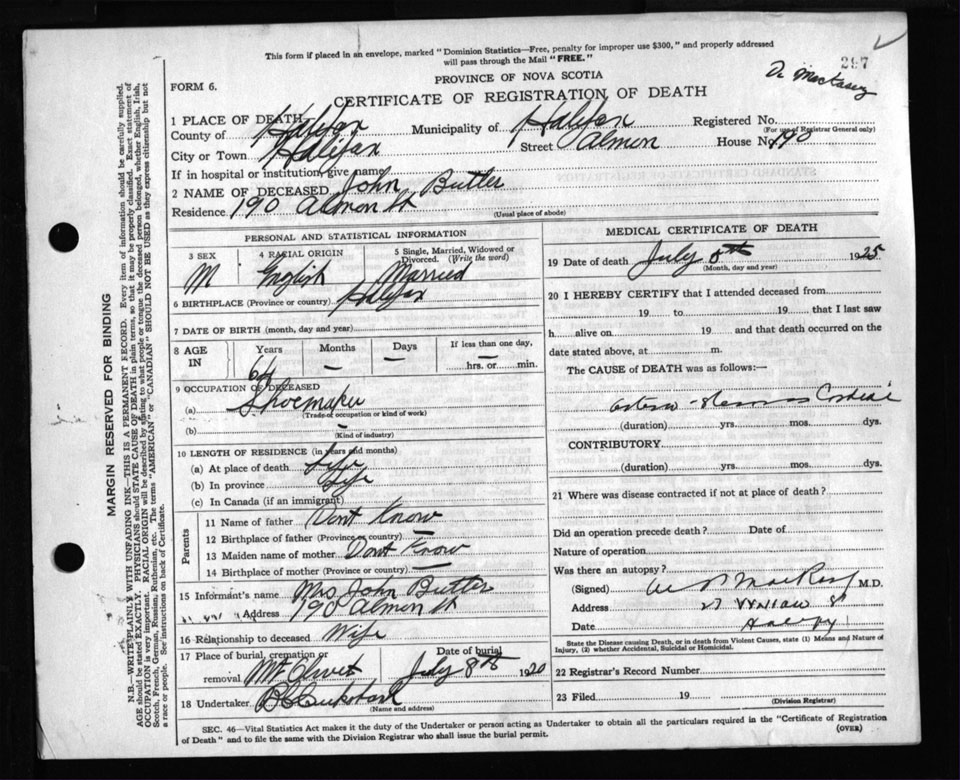 This form if placed in an envelope, marked "Dominion Statistics—Free, penalty for improper use $300," and properly addressed
will pass through the Mail "FREE."
297
PROVINCE OF NOVA SCOTIA
FORM 6.
CERTIFICATE OF REGISTRATION OF DEATH
1 PLACE OF DEATH
County of Halifax Municipality of Halifax Registered No.
(For use of Registrar General only)
City or Town Halifax Street Almon House No. 190
If in hospital or institution, give name
2 NAME OF DECEASED John Butler
Residence 190 Almon St
(Usual place of abode)
PERSONAL AND STATISTICAL INFORMATION
3 SEX 4 RACIAL ORIGIN 5 Single, Married, Widowed or Divorced. (Write the word)
M English Married
6 BIRTHPLACE (Province or country) Halifax
7 DATE OF BIRTH (month, day and year)
8 AGE IN Years Months Days If less than one day,
64 — — — hrs. or min.
9 OCCUPATION OF DECEASED
(a) Shoemaker
(Trade of occupation or kind of work)
(b) —
(Kind of industry)
10 LENGTH OF RESIDENCE (in years and months)
(a) At place of death Life
(b) In province Life
(c) In Canada (if an immigrant)
Parents
11 Name of father Dont Know
12 Birthplace of father (Province or country) —
13 Maiden name of mother Dont Know
14 Birthplace of mother (Province or country) —
15 Informant's name Mrs John Butler
" " Address 190 Almon St
16 Relationship to deceased Wife
17 Place of burial, cremation or removal Mt Olivet Date of burial July 8th 1920
18 Undertaker
(Name and address)
MEDICAL CERTIFICATE OF DEATH
19 Date of death July 5th 1925
(Month, day and year)
20 I HEREBY CERTIFY that I attended deceased from
19 to 19 that I last saw
h alive on 19 and that death occurred on the
date stated above, at m.
The CAUSE of DEATH was as follows:—
(duration) yrs. mos. dys.
CONTRIBUTORY
(duration) yrs. mos. dys.
21 Where was disease contracted if not at place of death?
Did an operation precede death? Date of
Nature of operation
Was there an autopsy?
(Signed) M.D.
Address
Date
State the Disease causing Death, or in death from Violent Causes, state (1) Means and Nature of
Injury, (2) whether Accidental, Suicidal or Homicidal.
22 Registrar's Record Number
23 Filed 19
(Division Registrar)
SEC. 46—Vital Statistics Act makes it the duty of the Undertaker or person acting as Undertaker to obtain all the particulars required in the "Certificate of Registration
of Death" and to file the same with the Division Registrar who shall issue the burial permit.
(OVER)
MARGIN RESERVED FOR BINDING
N.B.—WRITE PLAINLY WITH UNFADING INK—THIS IS A PERMANENT RECORD. Every item of information should be carefully supplied.
AGE should be stated EXACTLY. PHYSICIANS should STATE CAUSE OF DEATH in plain terms, so that it may be properly classified. Exact statement of
OCCUPATION is very important. RACIAL ORIGIN will be described by stating to what people or tongue the deceased person belonged, whether English, Irish,
Scotch, French, German, Russian, Ruthenian, etc. The terms "AMERICAN" or "CANADIAN" SHOULD NOT BE USED as they express citizenship but not
a race or people. See instructions on back of Certificate.